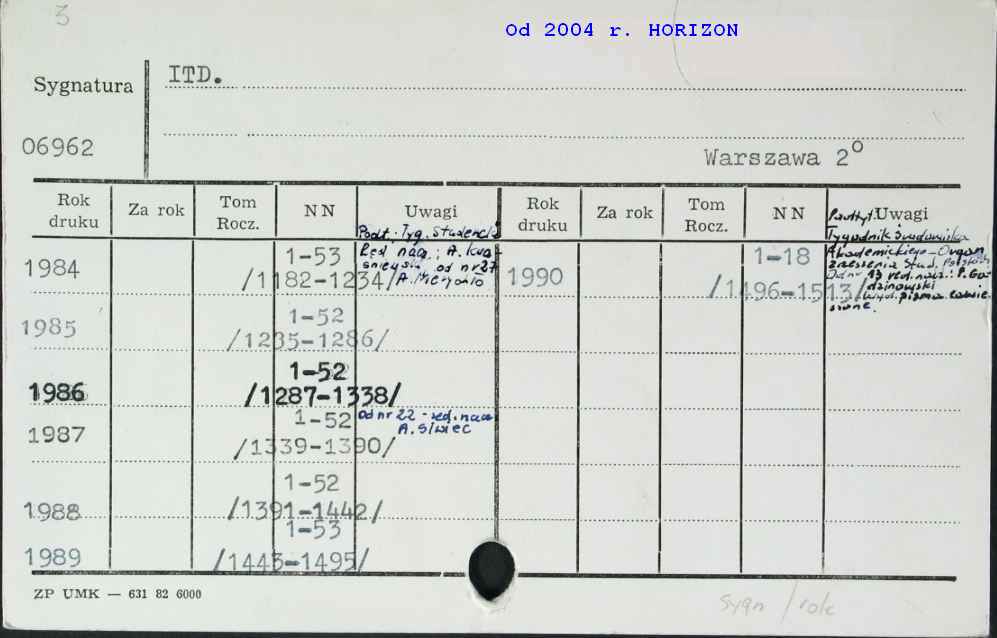 3
Od 2004 r. HORIZON
Sygnatura
ITD.
06962
Warszawa 2°
Rok druku Za rok Tom Rocz. NN Uwagi Rok druku Za rok Tom Rocz. NN Uwagi
Podt.: Tyg. Studencki
Red. nacz.: A. Kwa-
śniewski od nr 27
A.
1984 1-53
/1182-1234/
1985 1-52
/1235-1286/
1986 1-52
/1287-1338/
1987 1-52
/1339-1390/
Od nr 22 - red. nacz.
A. Siwiec
1988 1-52
/1391-1442/
1989 1-53
/1443-1495/
1990 1-18
/1496-1513/
Podtyt.:
Tygodnik Środowiska
Akademickiego - Organ
Zrzeszenia Stud. Polskich
Od nr 13 red. nacz.: P. Ga-
dzinowski
Wyd. pisma zawie-
szone.
ZP UMK — 631 82 6000
Sygn / rok